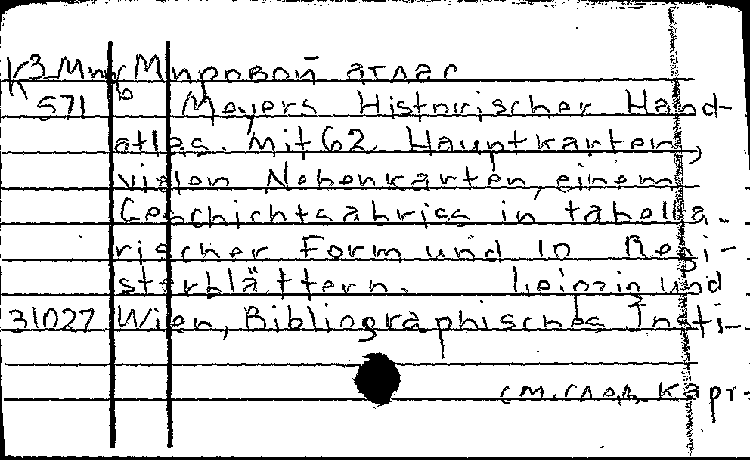 К3 Мир Мировой атлас
571 Meyers Historischer Hand-
atlas. Mit 62 Hauptkarten,
vielen Nebenkarten, einem
Geschichtsabriss in tabella-
rischer Form und 10 Regi-
sterblättern. Leipzig und
31027 Wien, Bibliographisches Insti-
см. след. карт-